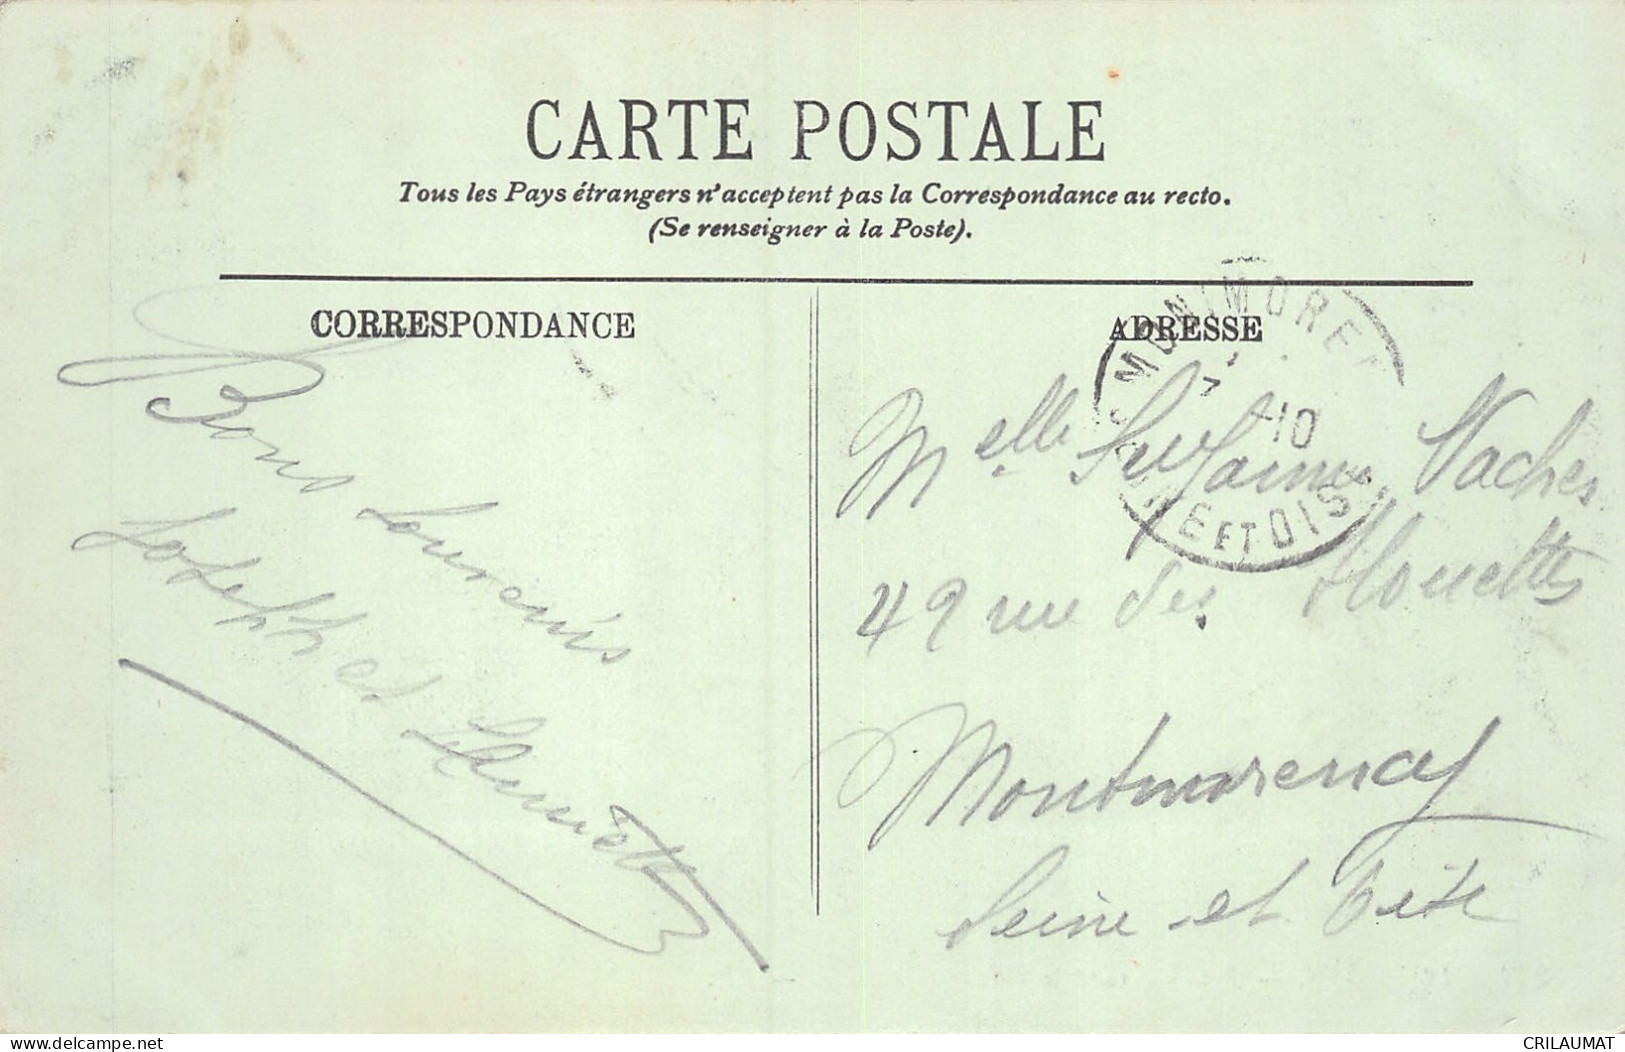 CARTE POSTALE
Tous les Pays étrangers n'acceptent pas la Correspondance au recto.
(Se renseigner à la Poste).
CORRESPONDANCE
Bons Souvenirs
Joseph et
ADRESSE
MONTMORE
10
ET OIS
Melle Suzanne Vaches
49 rue des Alouettes
Montmorency
Seine et Oise
www.delcampe.net
CRILAUMAT